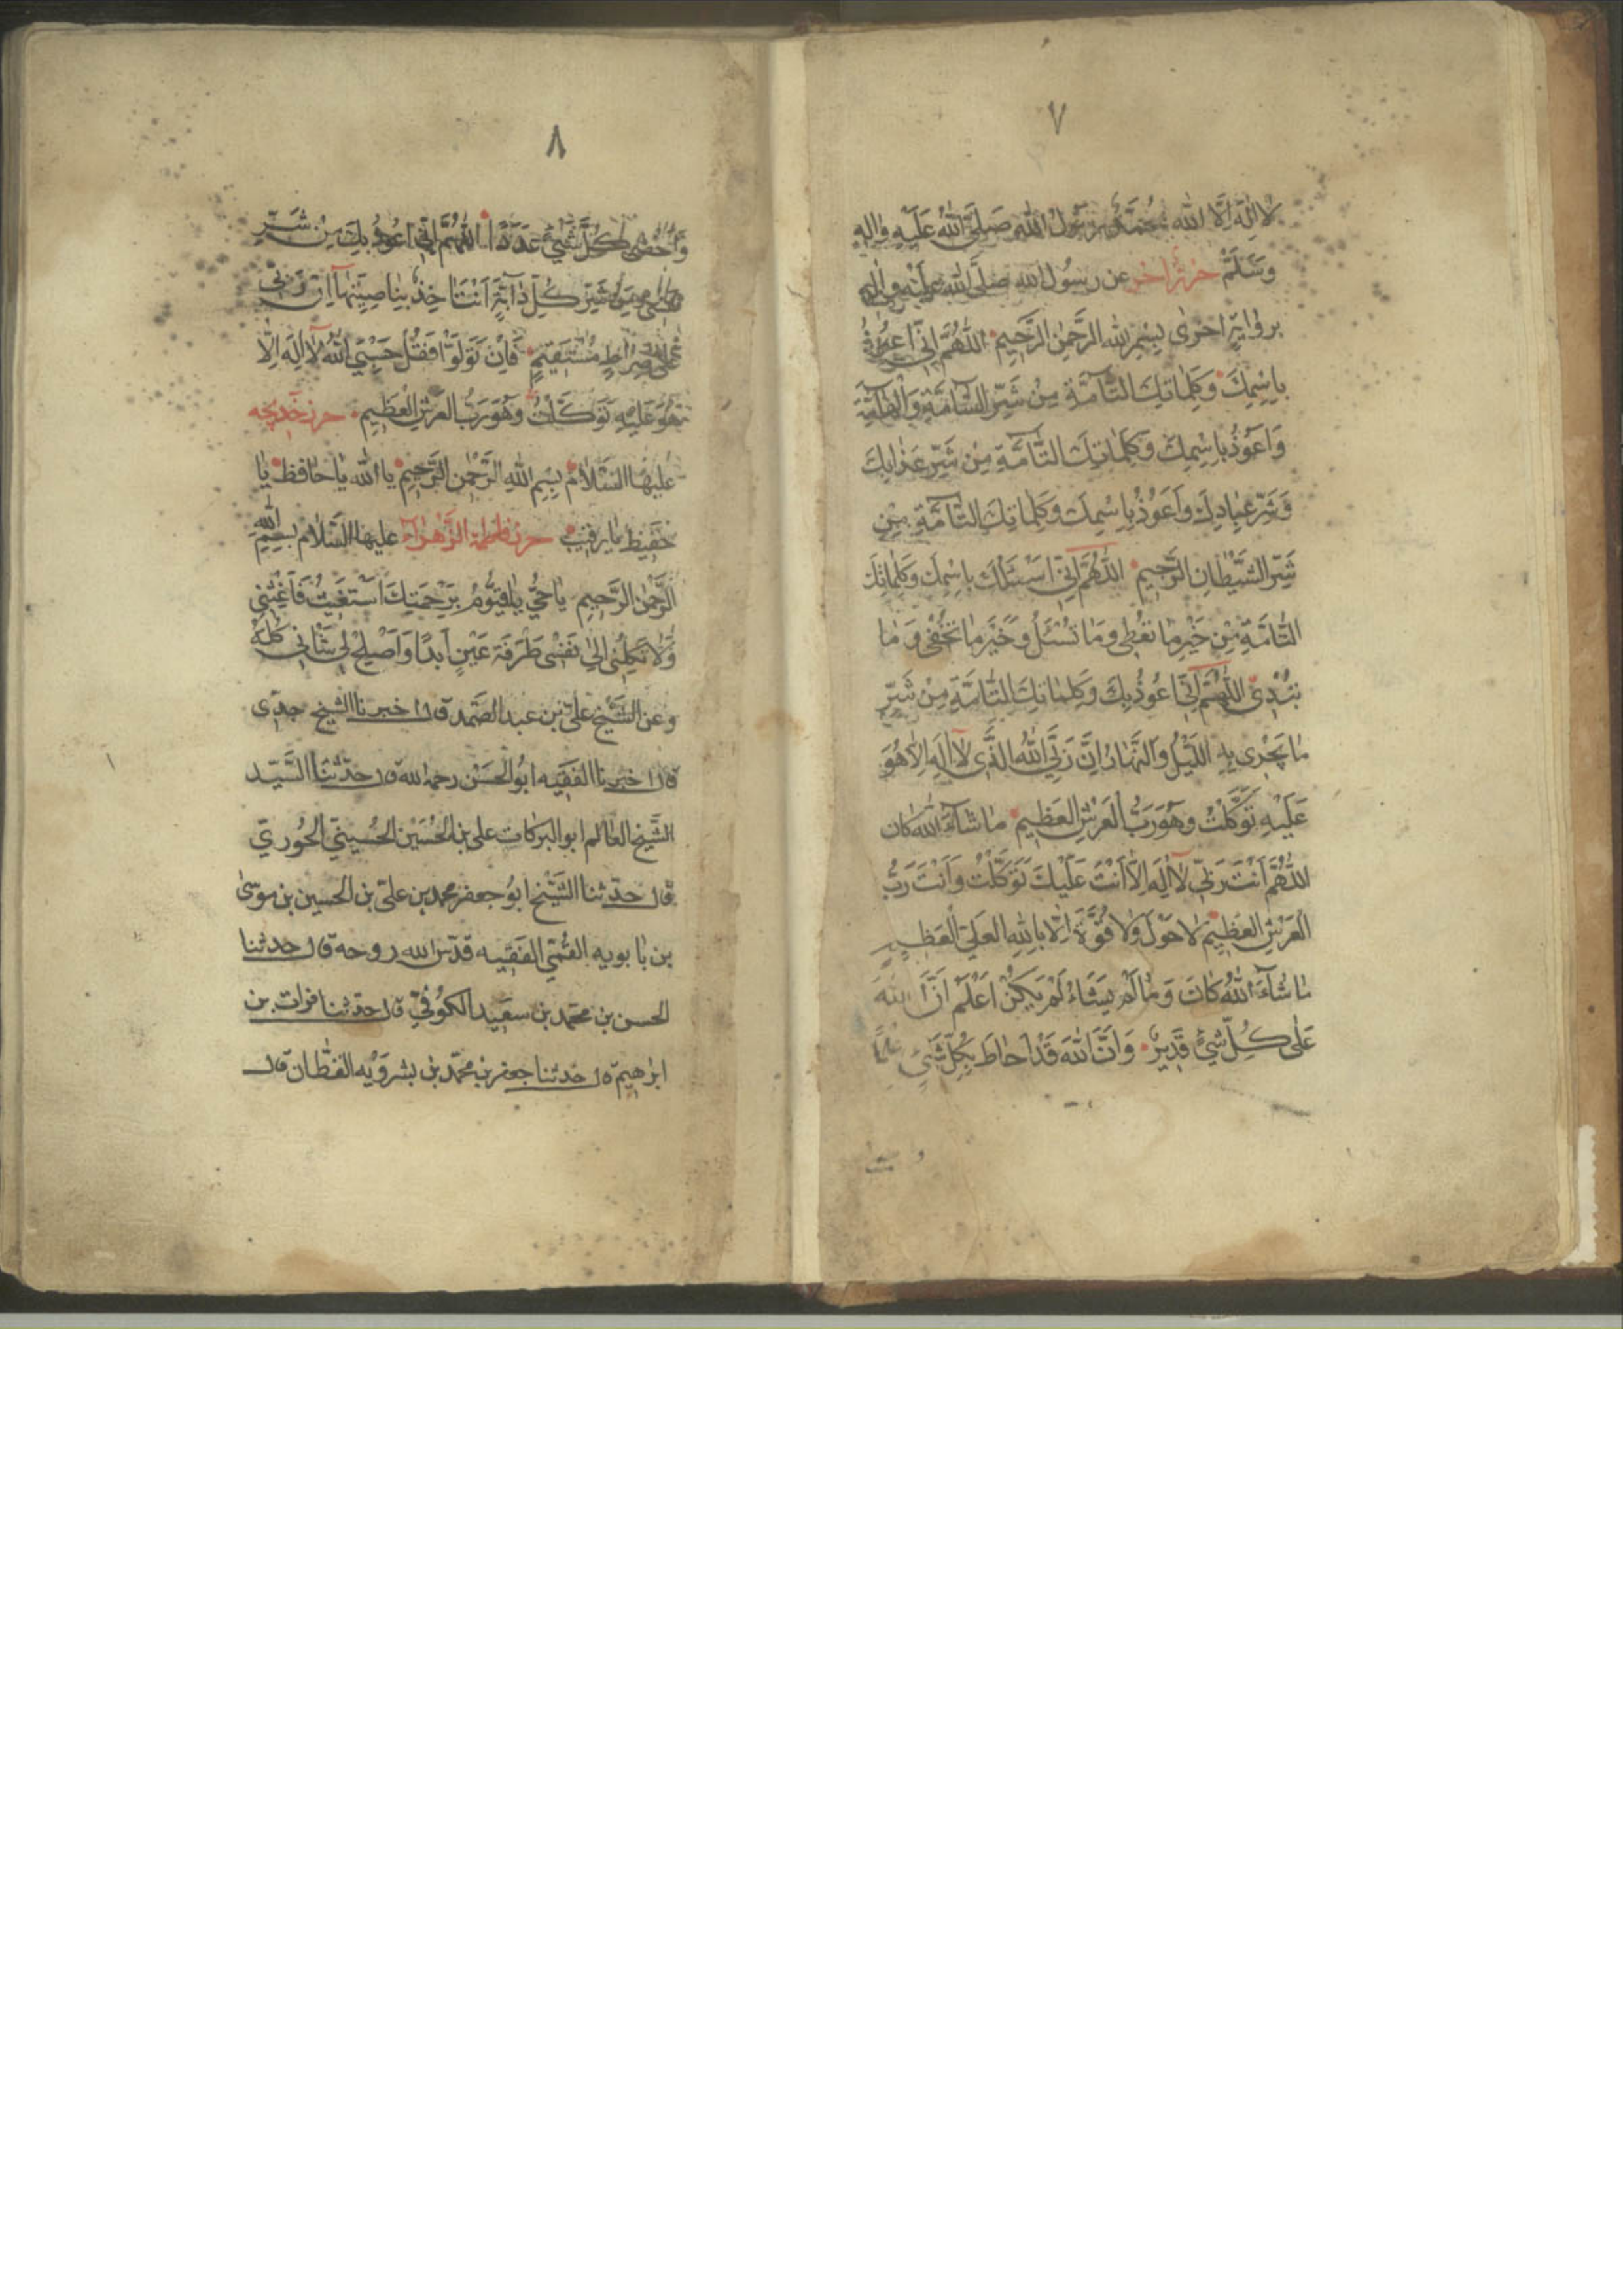 ٧
لا اله الا الله محمد رسول الله صلى الله عليه واله
وسلم حرز اخر عن رسول الله صلى الله عليه واله
برواية اخرى بسم الله الرحمن الرحيم اللهم انى اعوذ
باسمك وكلماتك التامة من شر السامة والهامة
واعوذ باسمك وكلماتك التامة من شر عذابك
وشر عبادك واعوذ باسمك وكلماتك التامة من
شر الشيطان الرجيم اللهم انى اسئلك باسمك وكلماتك
التامة من خير ما تعطى وما تسئل وخير ما تخفى وما
تبدى اللهم انى اعوذ بك وكلماتك التامة من شر
ما يجرى به الليل والنهار ان ربى الله الذى لا اله الا هو
عليه توكلت وهو رب العرش العظيم ما شاء الله كان
اللهم انت ربى لا اله الا انت عليك توكلت وانت رب
العرش العظيم لا حول ولا قوة الا بالله العلى العظيم
ما شاء الله كان وما لم يشاء لم يكن اعلم ان الله
على كل شئ قدير وان الله قد احاط بكل شئ علما
٨
واحصى كل شئ عددا اللهم انى اعوذ بك من شر
نفسى ومن شر كل دابة انت اخذ بناصيتها ان ربى
على صراط مستقيم فان تولوا فقل حسبى الله لا اله الا
هو عليه توكلت وهو رب العرش العظيم حرز خديجه
عليها السلام بسم الله الرحمن الرحيم يا الله يا حافظ يا
حفيظ يا رقيب حرز فاطمة الزهراء عليها السلام بسم الله
الرحمن الرحيم يا حى يا قيوم برحمتك استغيث فاغثنى
ولا تكلنى الى نفسى طرفة عين ابدا واصلح لى شانى كله
وعن الشيخ على بن عبد الصمد قال اخبرنا الشيخ جدى
قال اخبرنا الفقيه ابو الحسن رحمه الله قال حدثنا السيد
الشيخ العالم ابو البركات على بن الحسين الحسينى الحورى
قال حدثنا الشيخ ابو جعفر محمد بن على بن الحسين بن موسى
بن بابويه القمى الفقيه قدس الله روحه قال حدثنا
الحسن بن محمد بن سعيد الكوفى قال حدثنا فرات بن
ابرهيم قال حدثنا جعفر بن محمد بن بشرويه القطان قال